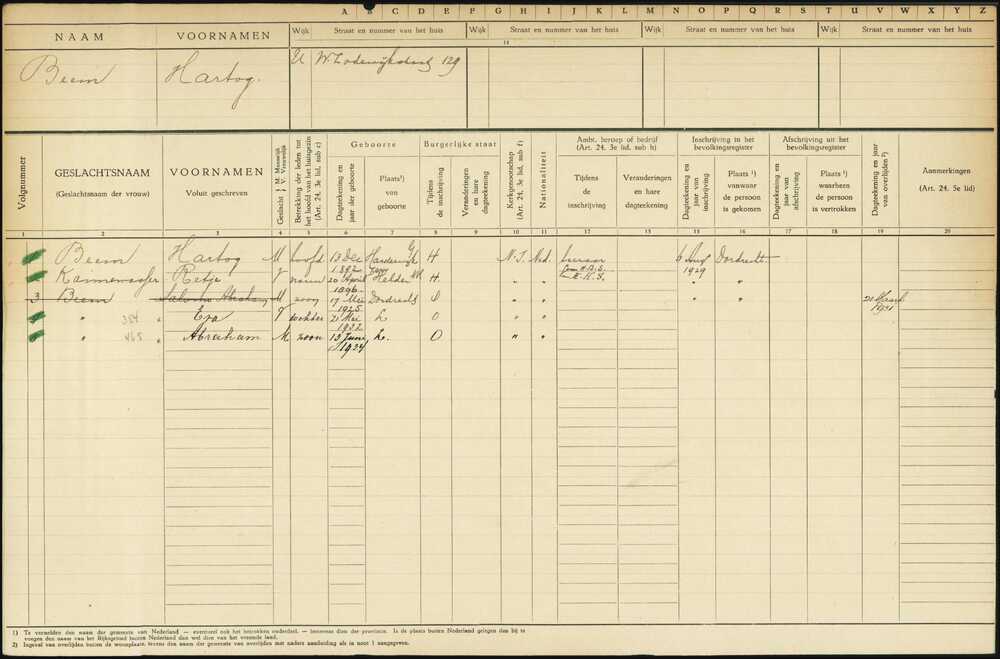 A B C D E F G H I J K L M N O P Q R S T U V W X Y Z
NAAM VOORNAMEN Wijk Straat en nummer van het huis Wijk Straat en nummer van het huis Wijk Straat en nummer van het huis Wijk Straat en nummer van het huis
14
Beem Hartog. W. Lodewijkstraat 129
Volgnummer
GESLACHTSNAAM
(Geslachtsnaam der vrouw)
VOORNAMEN
Voluit geschreven
Geslacht { M. Mannelijk V. Vrouwelijk
Betrekking der leden tot het hoofd van het huisgezin (Art. 24, 3e lid, sub c)
Geboorte
Dagteekening en jaar der geboorte
Plaats¹)
van
geboorte
Burgerlijke staat
Tijdens de inschrijving
Veranderingen en hare dagteekening
Kerkgenootschap (Art. 24, 3e lid, sub f)
Nationaliteit
Ambt, beroep of bedrijf
(Art. 24, 3e lid, sub h)
Tijdens
de
inschrijving
Veranderingen
en hare
dagteekening
Inschrijving in het
bevolkingsregister
Dagteekening en jaar van inschrijving
Plaats ¹)
vanwaar
de persoon
is gekomen
Afschrijving uit het
bevolkingsregister
Dagteekening en jaar van afschrijving
Plaats ¹)
waarheen
de persoon
is vertrokken
Dagteekening en jaar van overlijden ²)
Aanmerkingen
(Art. 24, 5e lid)
1 2 3 4 5 6 7 8 9 10 11 12 13 14 15 16 17 18 19 20
Beem Hartog M hoofd 13 Dec 1892 Harderwijk H N.I. Ned. leeraar 6 Aug 1929 Dordrecht
Retje V vrouw 20 April 1896 Helder H " " " "
3 Beem Salomon Abraham M zoon 17 Mei 1925 Dordrecht O " " " " 21 Maart 1931
" 384 " Eva V dochter 21 Mei 1932 L. O
" 465 " Abraham M zoon 13 Juni 1934 L. O " "
1) Te vermelden den naam der gemeente van Nederland — eventueel ook het betrokken onderdeel. — benevens dien der provincie. Is de plaats buiten Nederland gelegen dan bij te
voegen den naam van het Rijksgebied buiten Nederland dan wel dien van het vreemde land.
2) Ingeval van overlijden buiten de woonplaats, tevens den naam der gemeente van overlijden met nadere aanduiding als in noot 1 aangegeven.